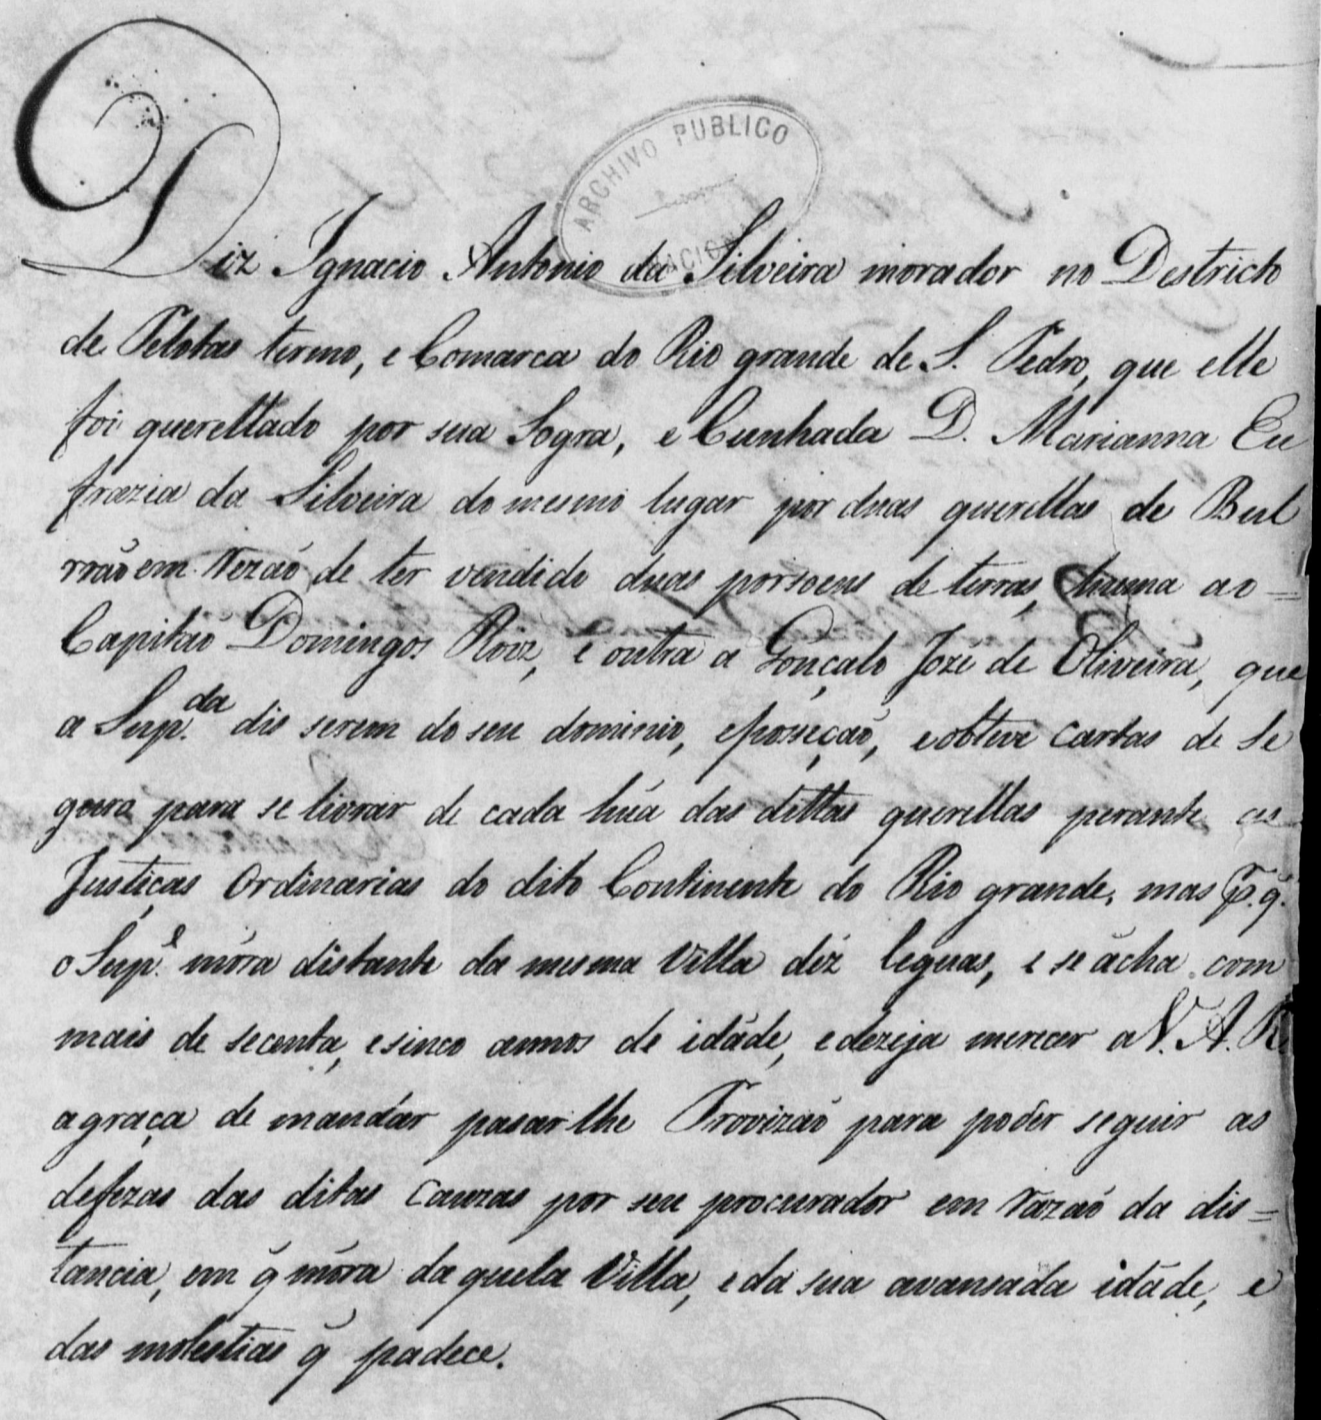 ARCHIVO PUBLICO
NACIONAL
Diz Ignacio Antonio da Silveira morador no Destricto
de Pelotas termo, e Comarca do Rio grande de S. Pedro, que elle
foi querellado por sua Sogra, e Cunhada D. Marianna Eu
frazia da Silveira do mesmo lugar por duas querellas de Bul
rraõ em rezaõ de ter vendido duas porsoens de terras, huma ao =
Capitaõ Domingos Roiz, e outra a Gonçalo Jozé de Oliveira, que
a Sup.da dis serem do seu dominio, eposseçaõ, e obteve cartas de Se
gura para se livrar de cada húa das dittas querellas perante as
Justiças Ordinarias do dito Continente do Rio grande, mas p. q.
o Sup.e móra distante da mesma Villa déz legoas, e se ácha com
mais de secenta, esinco annos de idáde, edezeja merecer a V. A. R
agraça de mandár pasar lhe Provizaõ para podèr seguir as
defezas das ditas Cauzas por seu procurador em razaõ da dis=
tancia, em q̃ móra daquela Villa, e da sua avansada idáde, e
das molestias q̃ padece.